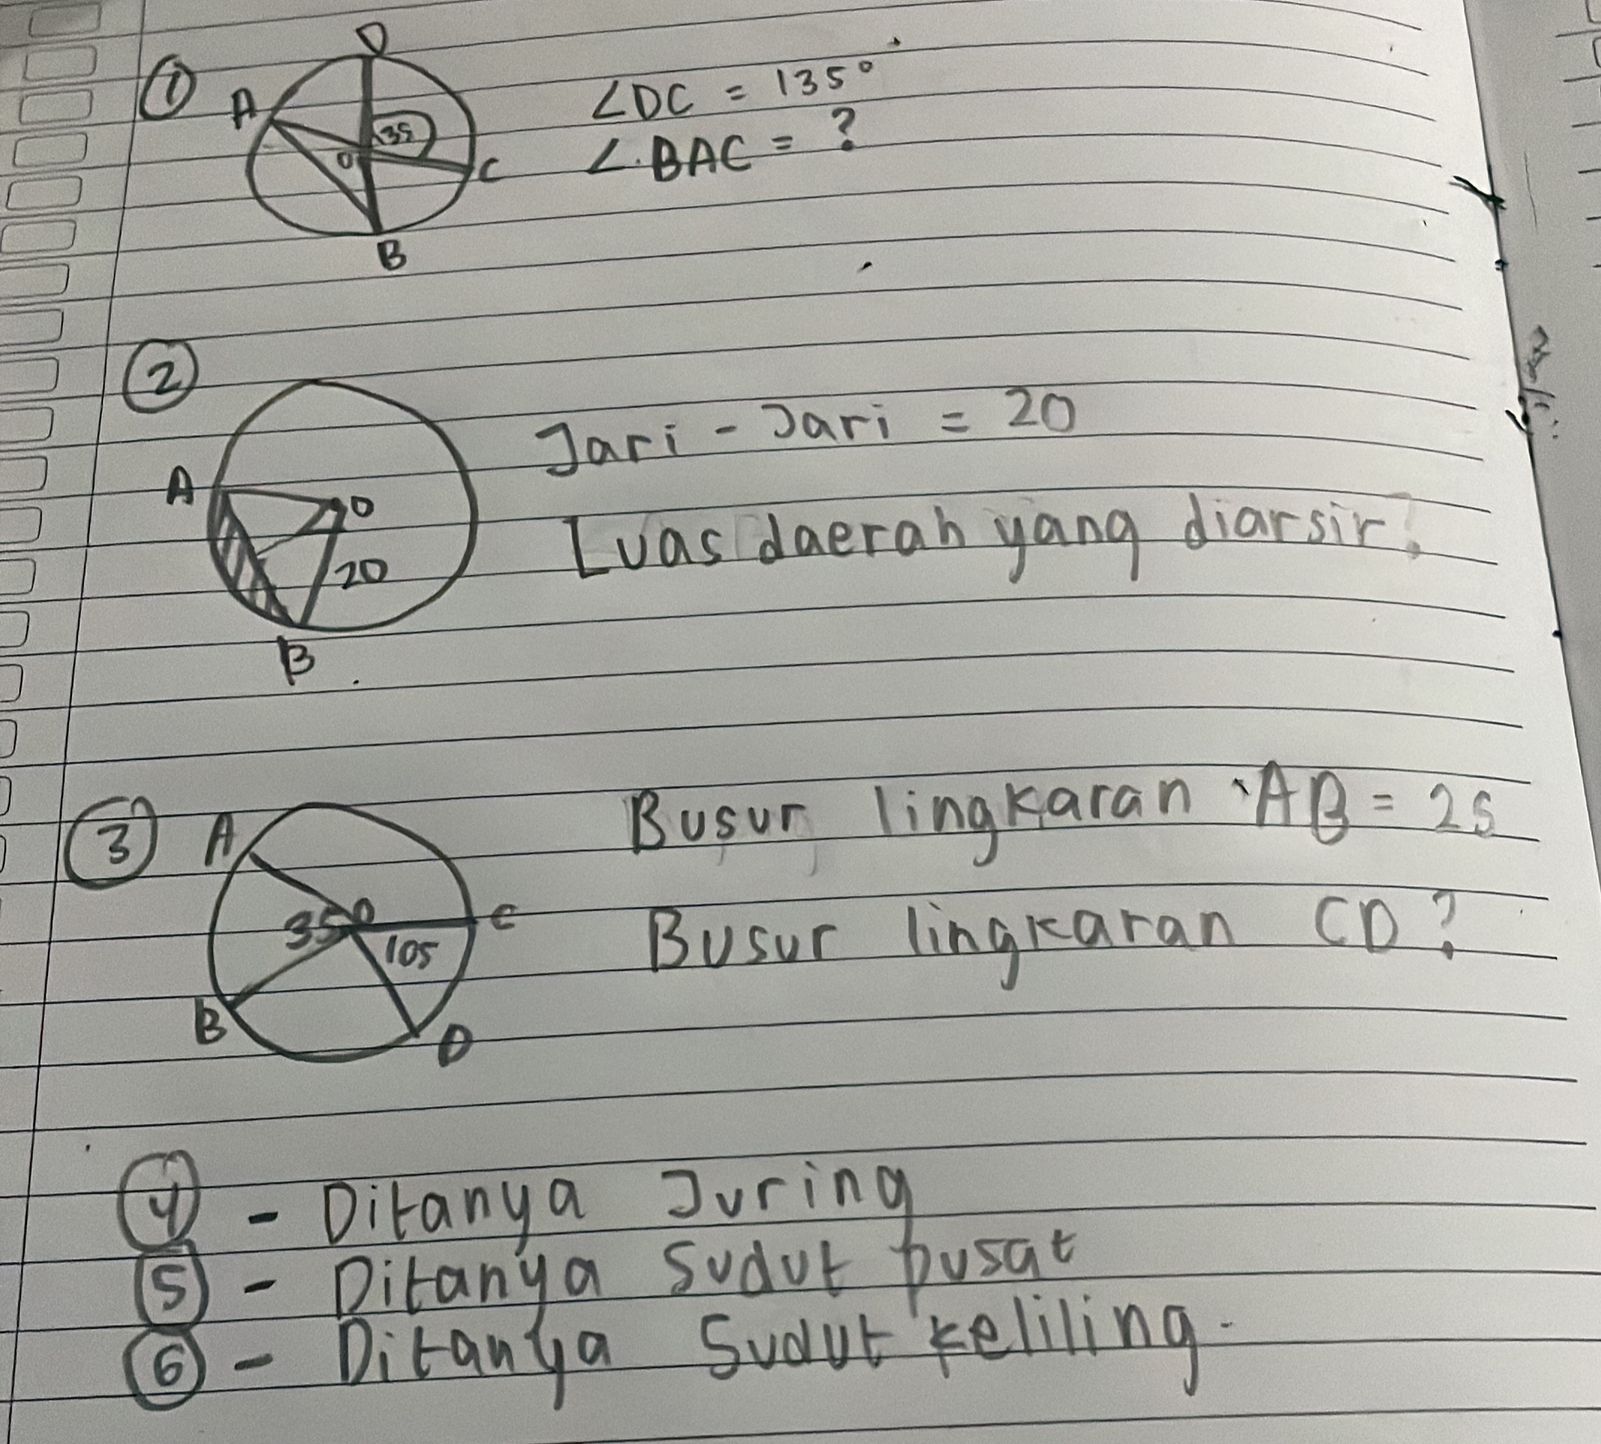 ① D
A 35 ∠DC = 135°
O C ∠BAC = ?
B
②
Jari - Jari = 20
A O
Luas daerah yang diarsir?
20
B
③ A Busur lingkaran AB = 25
35 O C
105 Busur lingkaran CD?
B D
④ - Ditanya Juring
⑤ - Ditanya Sudut pusat
⑥ - Ditanya Sudut keliling.